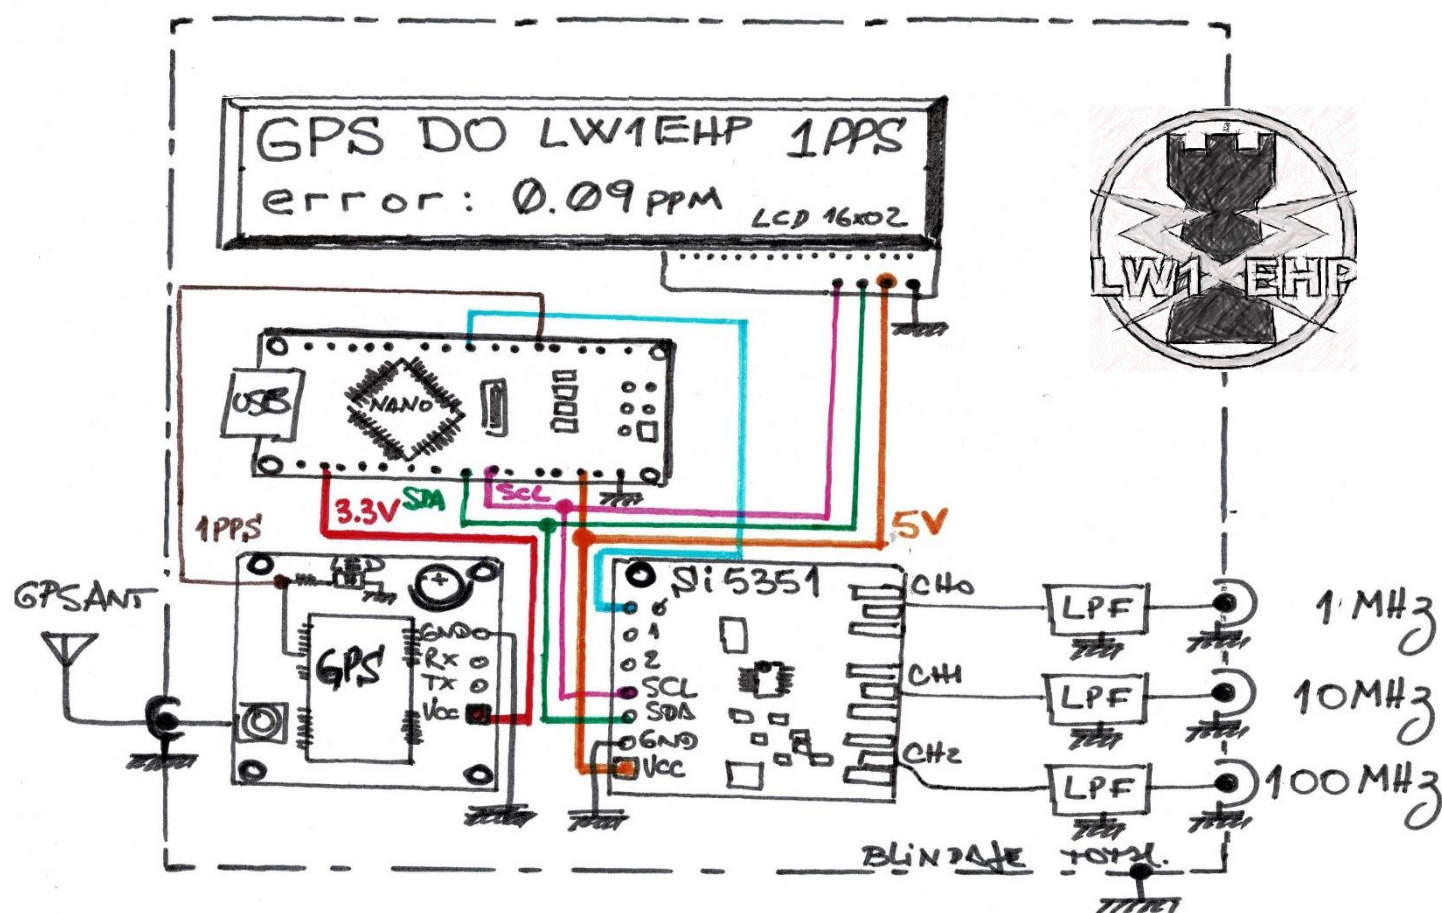 GPS DO LW1EHP 1PPS
error: 0.09 PPM
LCD 16x02
LW1 EHP
USB
NANO
3.3V
SDA
SCL
5V
1PPS
GPS ANT
LED
GPS
GND
RX
TX
VCC
Si5351
0
1
2
SCL
SDA
GND
VCC
CH0
CH1
CH2
LPF
LPF
LPF
1 MHz
10 MHz
100 MHz
BLINDAJE TOTAL.